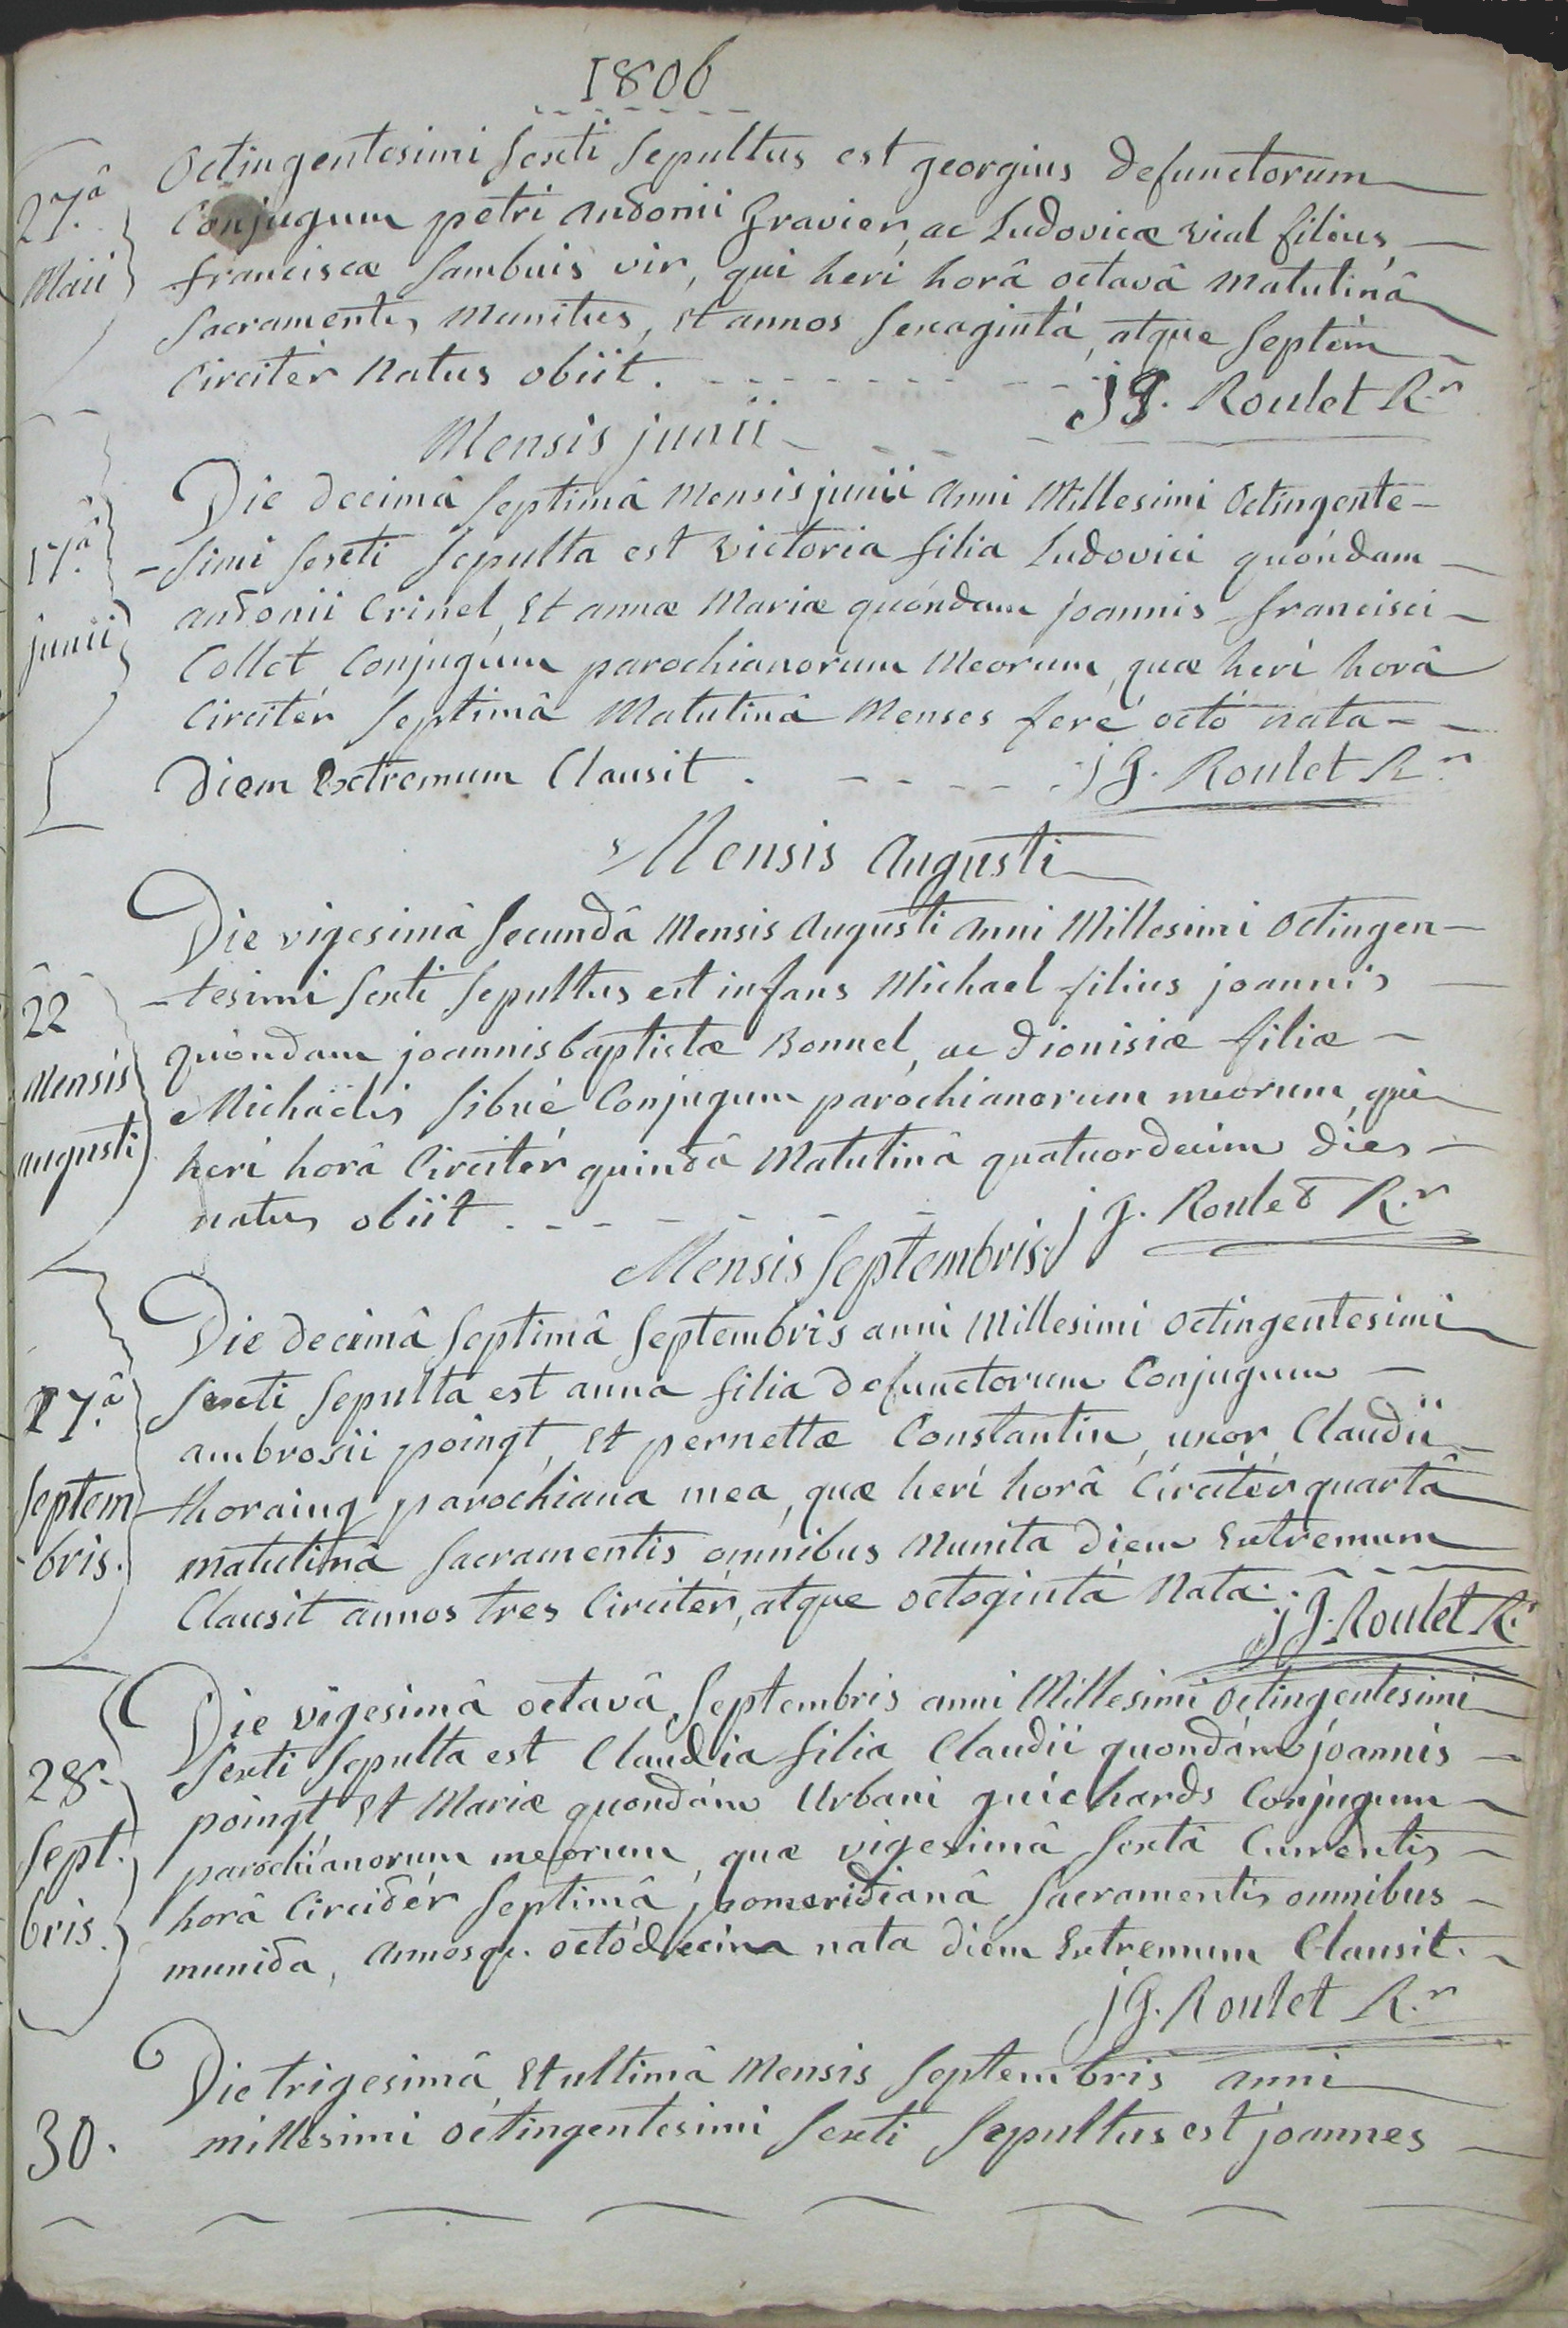 1806
27.â
Maii
Octingentesimi sexti sepultus est georgius defunctorum
Conjugum petri andonii Gravier, ac Ludovicæ vial filius,
franciscæ Sambuis vir, qui heri horâ octavâ matutinâ
Sacramentis munitus, et annos sexagintá, atque septém
Circitér natus obiit.
J G. Roulet R.r
Mensis junii
17.â
junii
Die decimâ septimâ mensis junii anni Millesimi Octingente-
-simi sexti sepulta est victoria filia Ludovici quóndam
andonii Crinel, Et annæ Mariæ quóndam joannis francisci
Collet Conjugúm parochianorum Meorum, quæ heri horâ
Circitér septimâ Matutinâ Menses feré octó nata
Diem Extremum Clausit.
j G. Roulet R.r
Mensis Augusti
22
Mensis
augusti
Die vigesimâ secundâ Mensis Augusti Anni Millesimi Octingen-
-tesimi sexti sepultus est infans Michael filius joannis
quòndam joannis baptistæ Bonnel, ac dionisiæ filiæ
Michaëlis sibué Conjugum parochianorum meorum, qui
heri horâ Circitér quindâ Matutinâ quatuordecim dies
natus obiit
j G. Rouled R.r
Mensis Septembris.
17.â
Septem
-bris.
Die decimâ septimâ septembris anni Millesimi octingentesimi
sexti sepulta est anna filia defunctorum Conjugum
ambrosii poingt, Et pernettæ Constantin, uxor Claudii
thoraing parochiana mea, quæ heri horâ Circitér quartâ
matutinâ sacramentis omnibus munita diem Extremum
Clausit annos tres Circitér, atque octogintá nata.
j G. Roulet R.r
28.
Sept.
bris.
Die vigesimâ octavâ septembris anni Millesimi octingentesimi
sexti sepulta est Claudia filia Claudii quondám joannis
poingt Et Mariæ quondám Urbani guichards Conjugum
parochianorum meorum, quæ vigesimâ sextâ Currentis
horâ Circidér septimâ pomeridianâ sacramentis omnibus
munida, annosq. octódecim nata diem Extremum Clausit.
j G. Roulet R.r
30.
Die trigesimâ Et ultimâ Mensis septembris anni
millesimi octingentesimi sexti sepultus est joannes